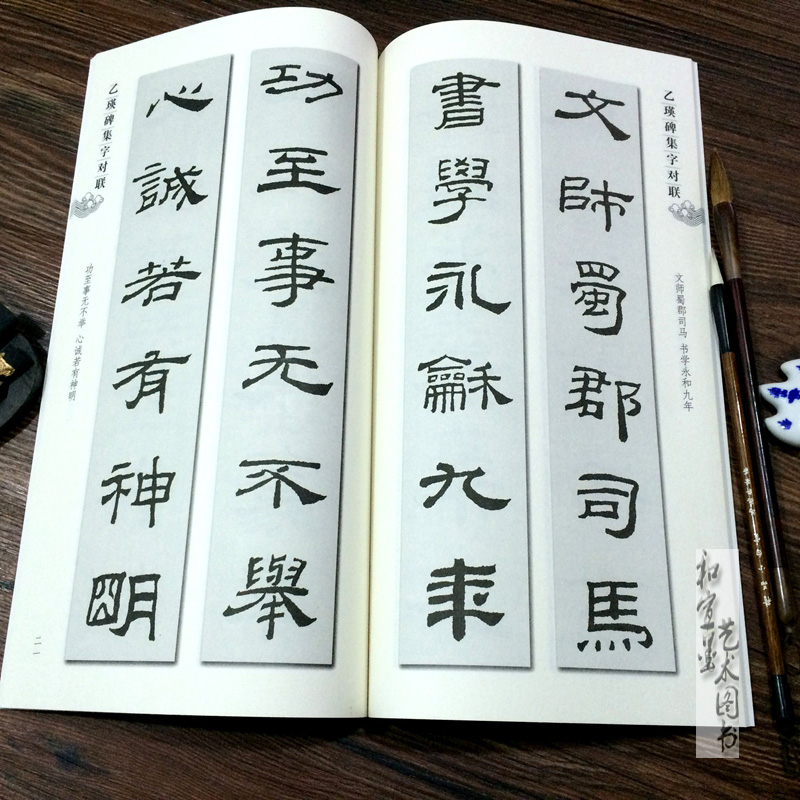 乙瑛碑集字对联
文师蜀郡司马 书学永和九年
文師蜀郡司馬
書學永龢九年
功至事无不舉
心誠若有神明
乙瑛碑集字对联
功至事无不举 心诚若有神明
二一
和宣墨
艺术图书